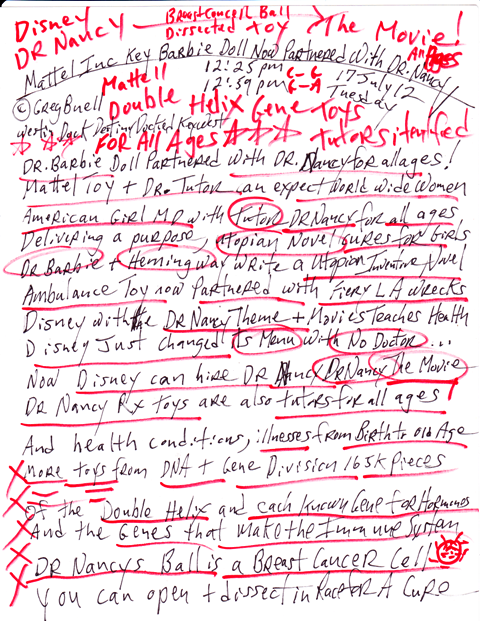 Disney Breast Cancer Cell Ball
DR Nancy Dissected toy The Movie!
Mattel Inc Key Barbie Doll Now Partnered With DR. Nancy
An Ages
12:25 pm C-C 17 July 12
Mattell 12:39 pm C-A Tuesday
© Greg Buell Double Helix Gene Toys
West Dock Destiny Docked Key West
FOR All Ages Tutors
DR. Barbie Doll Partnered With DR. Nancy for all ages!
Mattel Toy + Dr. Tutor an expect World Wide Women
American Girl MD with Tutor DR Nancy for all ages
Delivering a purpose, utopian Novel Cures for Girls
DR Barbie + Hemingway write a Utopian Inventor Novel
Ambulance Toy now Partnered with Fiery LA Wrecks
Disney with the DR Nancy Theme + Movies Teaches Health
Disney Just changed its Menu with No Doctor...
Now Disney can hire DR Nancy DR Nancy The Movie
DR Nancy Rx toys are also tutors for all ages!
And health conditions, illnesses from Birth to old Age
more toys from DNA + Gene Division 165K pieces
of the Double Helix and each known Gene for Hormones
And the Genes that make the Immune System
DR Nancys Ball is a Breast Cancer Cell
You can open + dissect in Race for A Cure